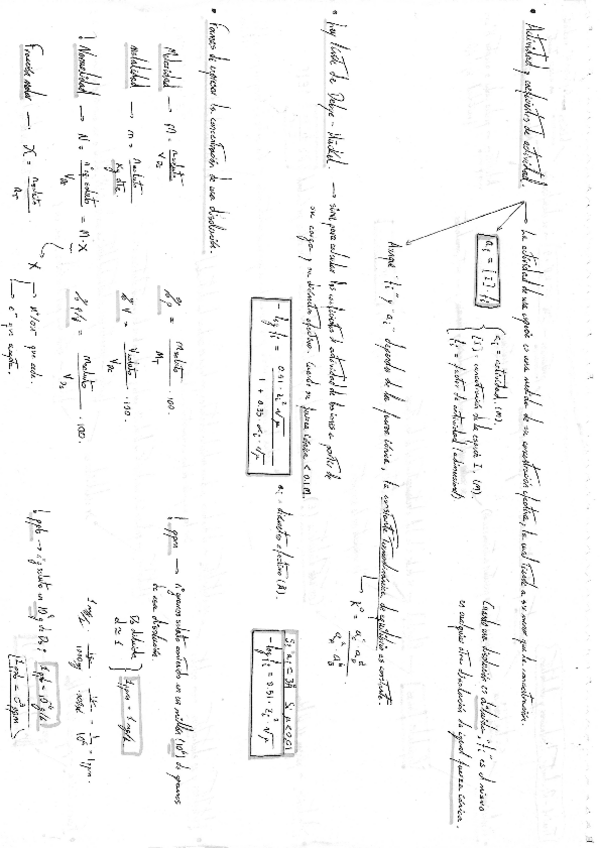 • Actividad y coeficientes de actividad.
La actividad de una especie es una medida de su concentración efectiva, la cual tiende a ser menor que la concentración.
ai = [I] · fi
ai = actividad. (M).
[I] = concentración de la especie I, (M).
fi = factor de actividad (adimensional)
Cuando una disolución es diluida, "fi" es el mismo
en cualquier otra disolución de igual fuerza iónica.
Aunque "fi" y "ai" dependen de la fuerza iónica, la constante termodinámica de equilibrio es constante.
• Ley límite de Debye - Hückel. → sirve para calcular los coeficientes de actividad de los iones a partir de
su carga y su diámetro efectivo. Cuando su fuerza iónica < 0.1 M.
- log fi = 0.51 · zi² √μ / 1 + 0.33 · αi · √μ
αi = diámetro efectivo (Å).
Si αi ≈ 3Å Si μ < 0,01
- log fi = 0.51 · zi² · √μ
• Formas de expresar la concentración de una disolución.
Molaridad → M = nsoluto / VDs
molalidad → m = nsoluto / Kg dte
! Normalidad → N = nº eq. soluto / VDs = M · X
Fracción molar → X = nsoluto / nT
X → H⁺/OH⁻ que cede.
→ e⁻ que acepta.
%p = msoluto / MT · 100.
%V = Vsoluto / VDs · 100.
%p/V = msoluto / VDs · 100.
! ppm → nº gramos soluto contenido en un millón (10⁶) de gramos
de una disolución
Ds diluida
d ≈ 1
1 ppm = 1 mg/L
1 mg/L · 1g / 1000mg · 1L / 1000g = 1 / 10⁶ = 1 ppm.
! ppb → g soluto en 10⁹ g de Ds;
1 ppb = 10⁻⁶ g/L
1 ppb = 10⁻³ ppm